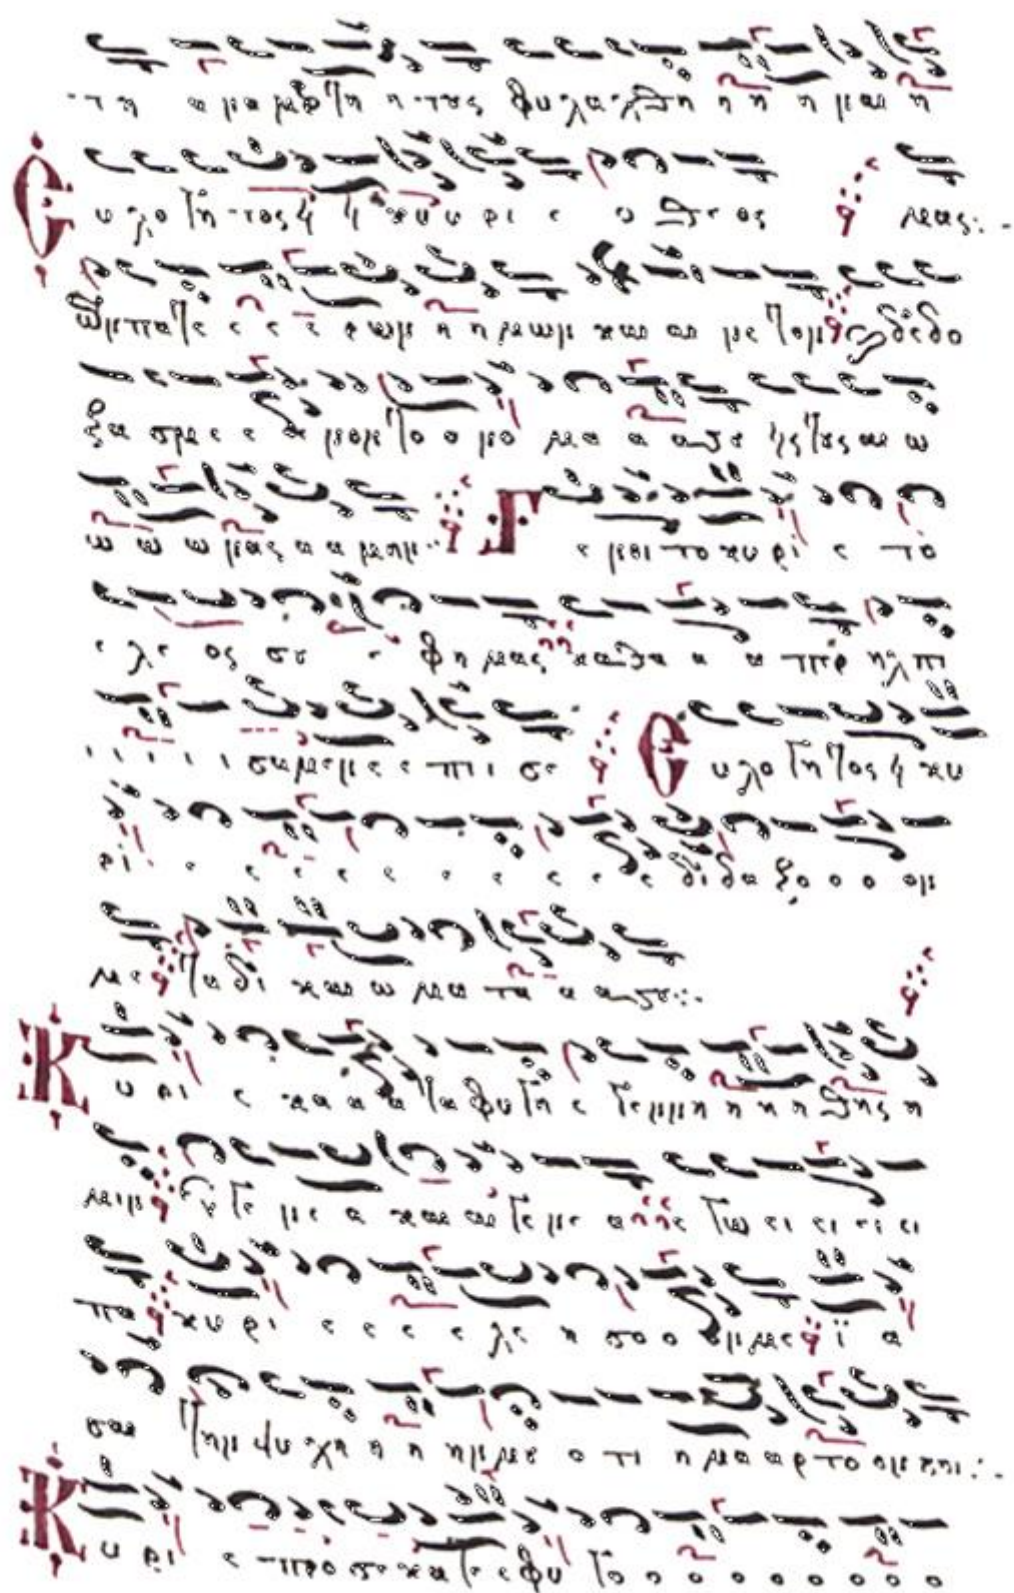 τη α να μαρ τη η τους φυ λα χθη η η η ναι η
Ευ λο γη τος ει ει κυ υ ρι ε ο θε ος μας
των πα τε ε ε ε ρων η η μων και αι νε τον δε δο
ξα σμε ε ε νον το ο νο μα α α σου εις τους αι ω
ω ω ω νας α α μην Γε νοι το κυ ρι ε το
ε λε ος σου ε φη μας καθα α α περ ηλ πι
ι ι ι ι ι σαμεν ε ε πι σε Ευ λο γη τος ει κυ
ρι ε ε ε ε ε ε ε ε ε ε δι δα ξο ο ο ον
με τα δι και ω μα τα α α σου
Κυ ρι ε κα α α τα φυ γη ε γεννη η η η θης η
μιν εν γε νε α και αι γε νε α ε γω ει ει ει ει
πα κυ ρι ε ε ε ε λε η σο ο ον με ϊ α
σαι την ψυ χη η η ην μου ο τι η μα α αρ το ον σοι
Κυ ρι ε προ σε κα τε ε φυ γο ο ο ο ο ο ο ο ο